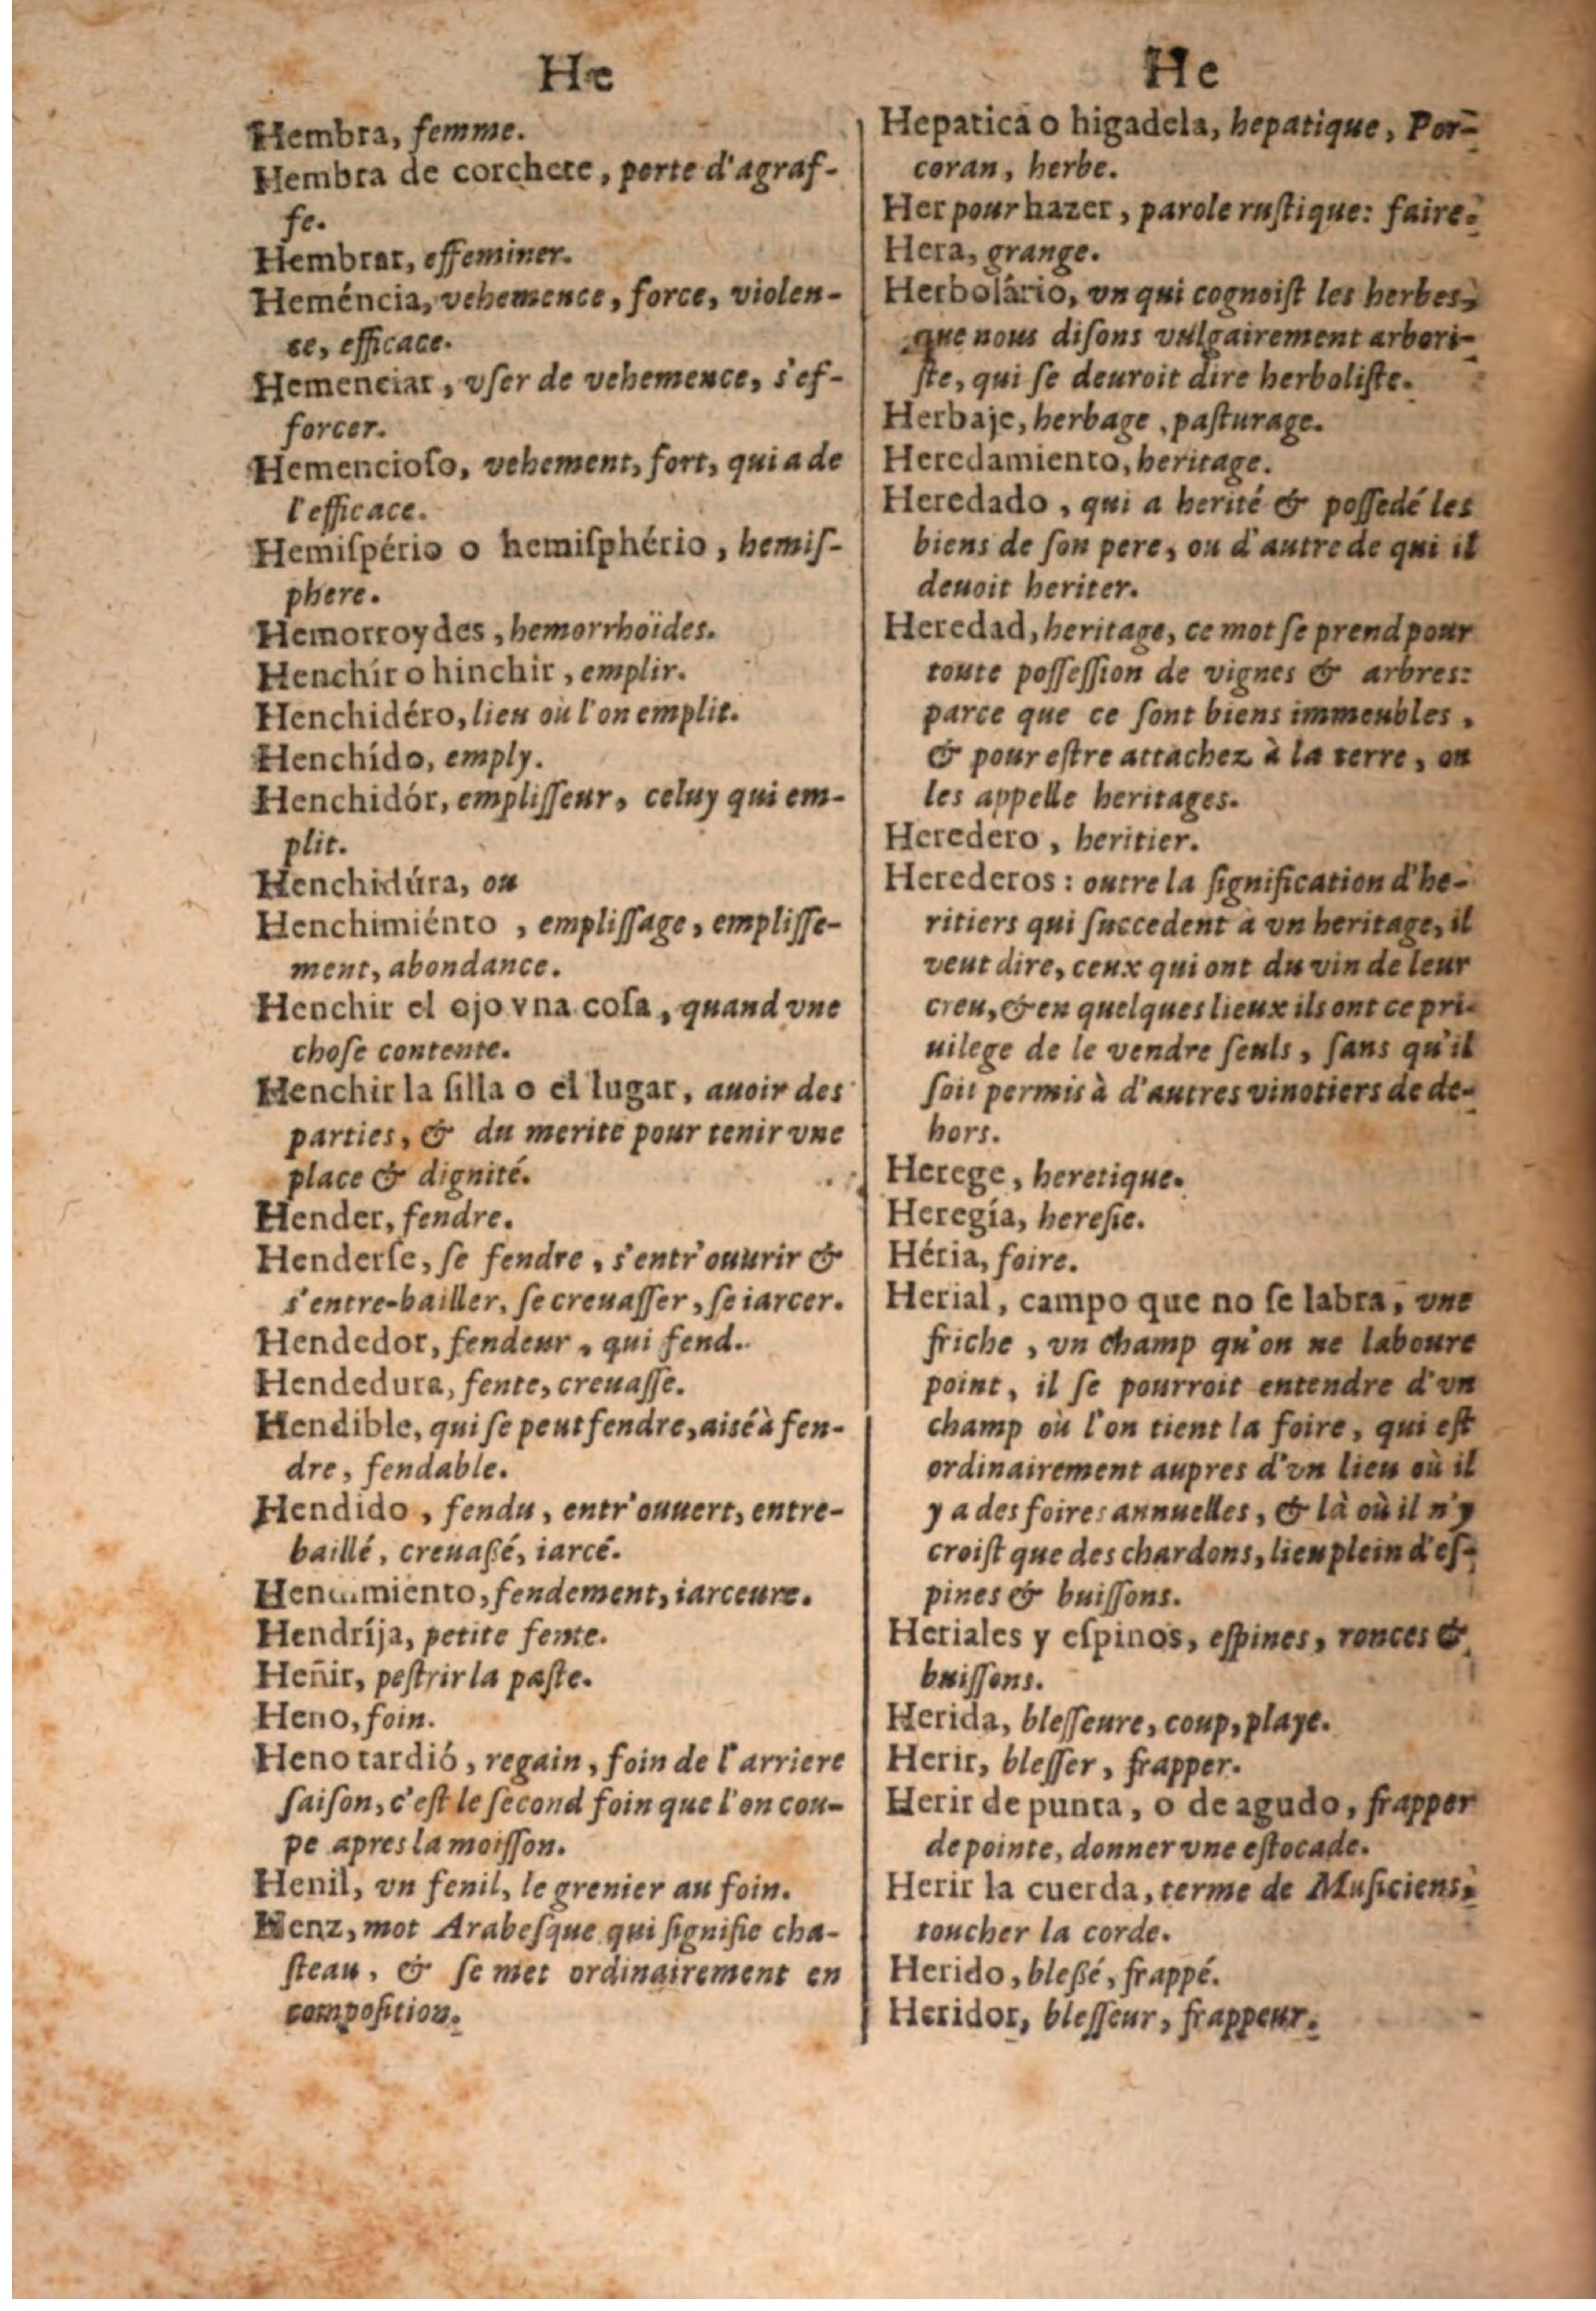 He
Hembra, femme.
Hembra de corchete, porte d'agraf-
fe.
Hembrar, effeminer.
Heméncia, vehemence, force, violen-
ce, efficace.
Hemenciar, vſer de vehemence, s'ef-
forcer.
Hemencioſo, vehement, fort, qui a de
l'efficace.
Hemiſpério o hemiſphério, hemiſ-
phere.
Hemorroydes, hemorrhoïdes.
Henchír o hinchir, emplir.
Henchidéro, lieu où l'on emplit.
Henchído, emply.
Henchidór, empliſſeur, celuy qui em-
plit.
Henchidúra, ou
Henchimiénto, empliſſage, empliſſe-
ment, abondance.
Henchir el ojo vna coſa, quand vne
choſe contente.
Henchir la ſilla o el lugar, auoir des
parties, & du merite pour tenir vne
place & dignité.
Hender, fendre.
Henderſe, ſe fendre, s'entr'ouurir &
s'entre-bailler, ſe creuaſſer, ſe iarcer.
Hendedor, fendeur, qui fend.
Hendedura, fente, creuaſſe.
Hendible, qui ſe peut fendre, aisé à fen-
dre, fendable.
Hendido, fendu, entr'ouuert, entre-
baillé, creuaßé, iarcé.
Hendimiento, fendement, iarceure.
Hendríja, petite fente.
Heñir, peſtrir la paſte.
Heno, foin.
Heno tardió, regain, foin de l'arriere
ſaiſon, c'eſt le ſecond foin que l'on cou-
pe apres la moiſſon.
Henil, vn fenil, le grenier au foin.
Henz, mot Arabeſque qui ſignifie cha-
ſteau, & ſe met ordinairement en
compoſition.
He
Hepatica o higadela, hepatique, Por-
coran, herbe.
Her pour hazer, parole ruſtique: faire.
Hera, grange.
Herbolário, vn qui cognoiſt les herbes,
que nous diſons vulgairement arbori-
ſte, qui ſe deuroit dire herboliſte.
Herbaje, herbage, paſturage.
Heredamiento, heritage.
Heredado, qui a herité & poſſedé les
biens de ſon pere, ou d'autre de qui il
deuoit heriter.
Heredad, heritage, ce mot ſe prend pour
toute poſſeſſion de vignes & arbres:
parce que ce ſont biens immeubles,
& pour eſtre attachez à la terre, on
les appelle heritages.
Heredero, heritier.
Herederos: outre la ſignification d'he-
ritiers qui ſuccedent à vn heritage, il
veut dire, ceux qui ont du vin de leur
creu, & en quelques lieux ils ont ce pri-
uilege de le vendre ſeuls, ſans qu'il
ſoit permis à d'autres vinotiers de de-
hors.
Herege, heretique.
Heregía, hereſie.
Héria, foire.
Herial, campo que no ſe labra, vne
friche, vn champ qu'on ne laboure
point, il ſe pourroit entendre d'vn
champ où l'on tient la foire, qui eſt
ordinairement aupres d'vn lieu où il
y a des foires annuelles, & là où il n'y
croiſt que des chardons, lieu plein d'eſ-
pines & buiſſons.
Heriales y eſpinos, eſpines, ronces &
buiſſons.
Herida, bleſſeure, coup, playe.
Herir, bleſſer, frapper.
Herir de punta, o de agudo, frapper
de pointe, donner vne eſtocade.
Herir la cuerda, terme de Muſiciens,
toucher la corde.
Herido, bleßé, frappé.
Heridor, bleſſeur, frappeur.